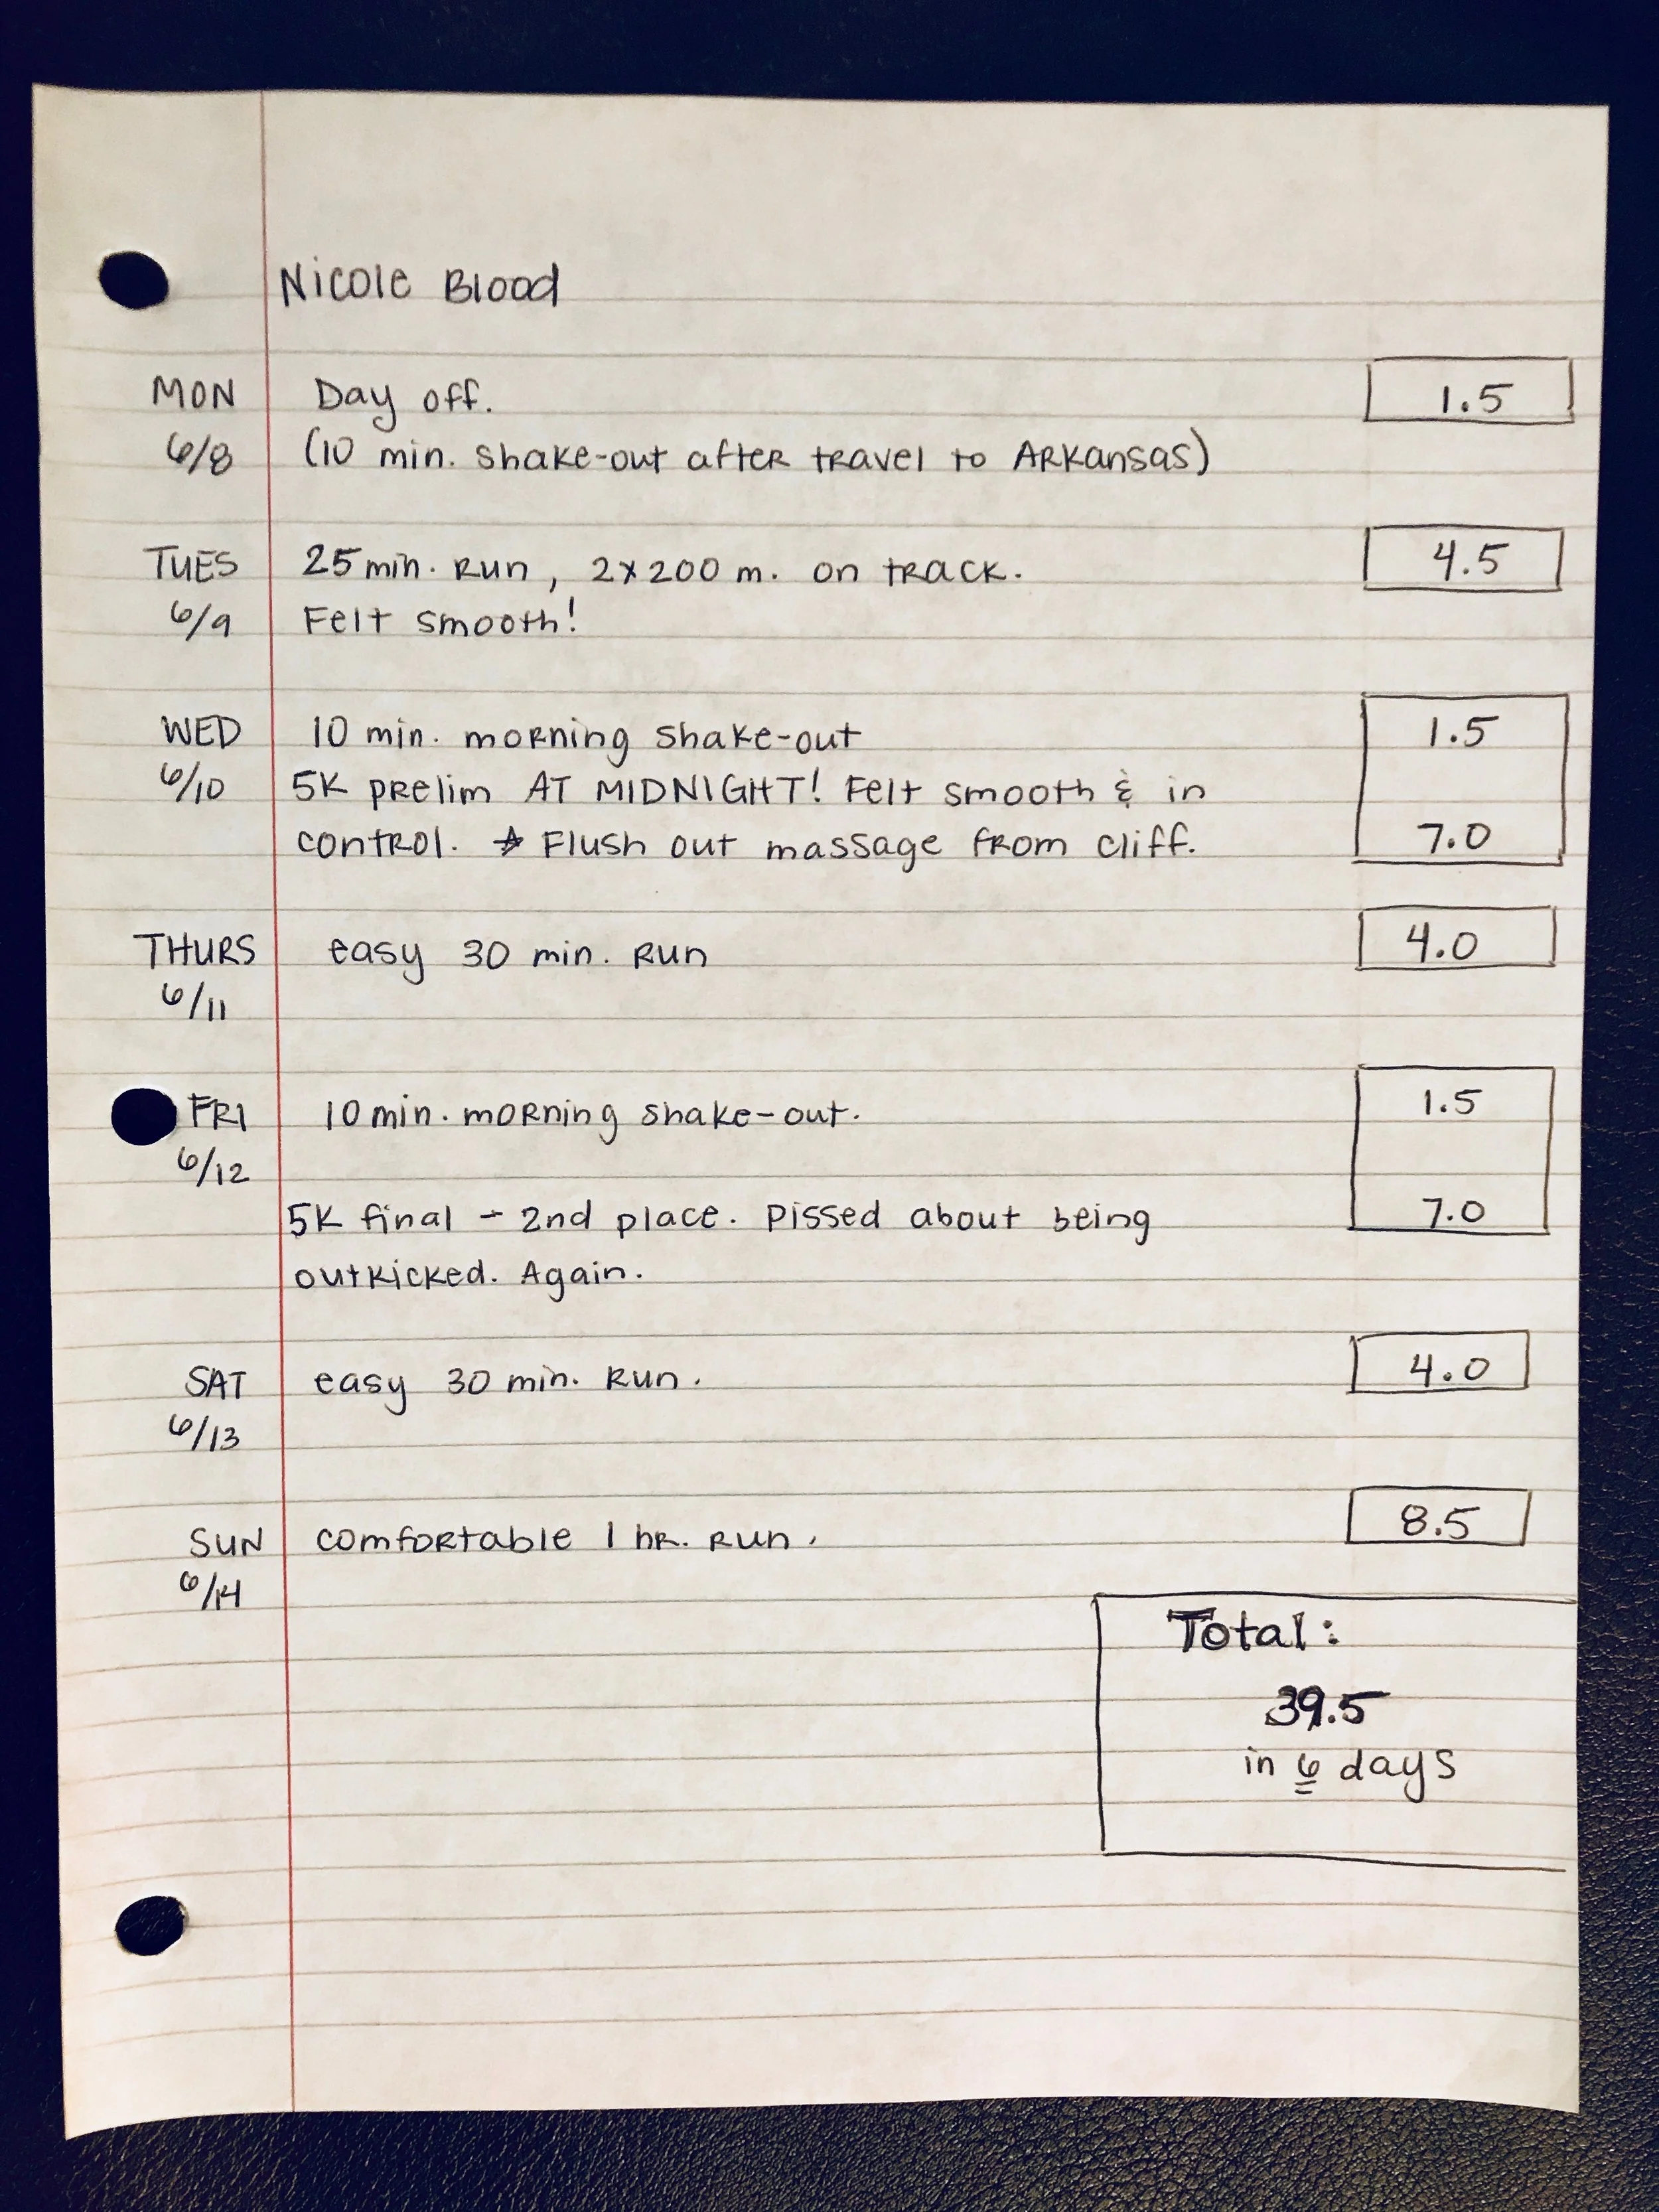 Nicole Blood
MON Day off. 1.5
6/8 (10 min. shake-out after travel to Arkansas)
TUES 25 min. run, 2x200 m. on track. 4.5
6/9 Felt smooth!
WED 10 min. morning shake-out 1.5
6/10 5K prelim AT MIDNIGHT! Felt smooth & in
control. ☆ Flush out massage from Cliff. 7.0
THURS easy 30 min. run 4.0
6/11
FRI 10 min. morning shake-out. 1.5
6/12
5K final - 2nd place. Pissed about being 7.0
outkicked. Again.
SAT easy 30 min. run. 4.0
6/13
SUN comfortable 1 hr. run. 8.5
6/14
Total:
39.5
in 6 days